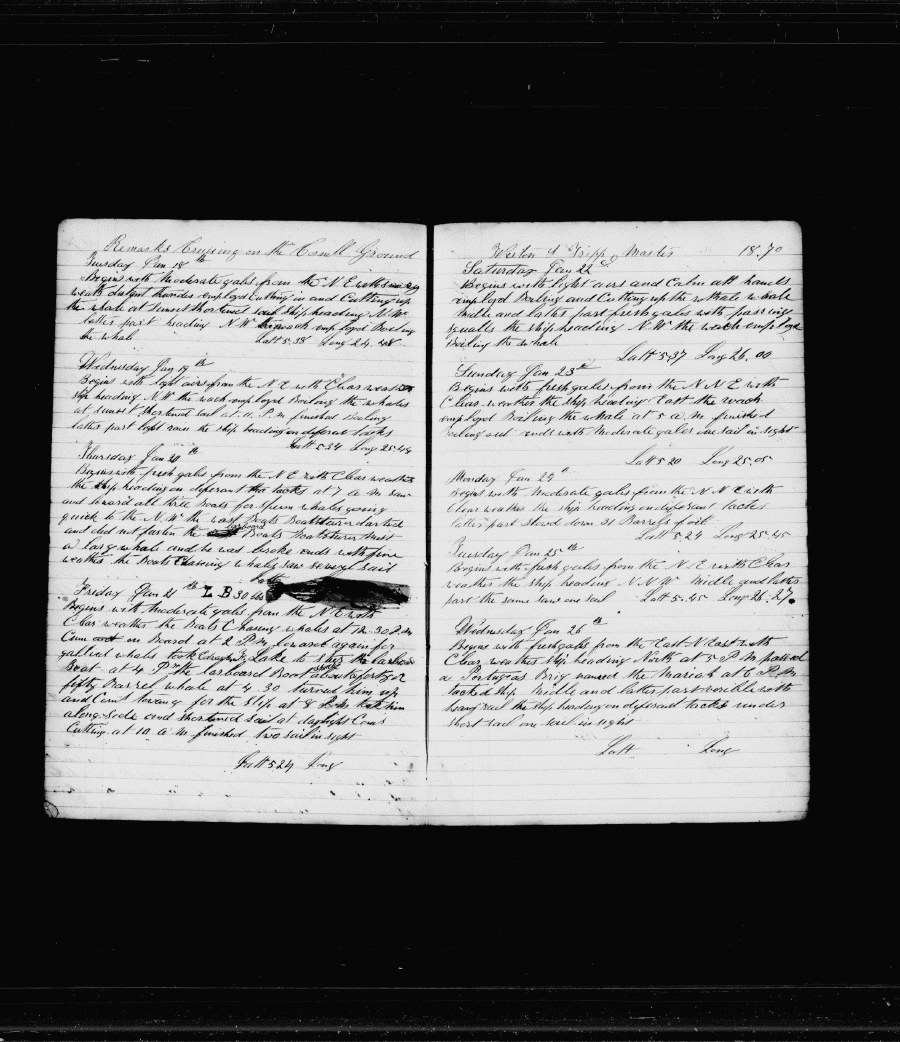 Remarks Cruising on the Cornell Ground
Tuesday Jan 18th
Begins with Moderate gales from the N E with
weath distant thunder employd Cutting in and Cutting up
the whale at sunset shortened sail ship heading N.W
latter part heading N.W the wach employd Boiling
the whale Latt 5.38 Long 24.48
Wednesday Jan 19th
Begins with light airs from the N.E with Clear weather
ship heading N.W the wach employd Boiling the whales
at sunset shortened sail at P.M finished Boiling
latter part light rain the ship heading on diferent tacks
Latt 5.34 Long 25.44
Thursday Jan 20th
Begins with fresh gales from the N E with Clear weather
the ship heading on diferant tacks at 7 A M saw
and lowerd all three Boats for sperm whales going
quick to the N.W the Boats Boatstearer darted
and did not fasten the larboard Boats Boatstearer
a large whale and he was broke ends with fine
weather the Boats Chaseing whales saw severel sail
Latt
Friday Jan 21th L B 30
Begins with Moderate gales from the N.E with
Clear weather the Boats Chasing whales at 12.30 P.M
Cum on Board at 2 P.M lowered again for
gallied whales took Edward Lake to the larboard
Boat at 4 P.M the larboard Boat about forty or
fifty Barrel whale at 4 30 turned him up
and Com towing for the Ship at 8 P.M took him
along side and shortened sail at daylight Com
Cutting at 10 A M finished two sail in sight
Latt 5 24 Long
Weston Tripp Master 18.70
Saturday Jan 22nd
Begins with light airs and Calm all hands
employd Boiling and Cutting up the whale
midle and later part fresh gales with passing
squalls the ship heading N.W the wach employd
Boiling the whale
Latt 5.37 Long 26.00
Sunday Jan 23th
Begins with fresh gales from the N N E with
Clear weather the ship heading East the wach
employd Boiling the whale at 5 A.M finished
boiling out ends with Moderate gales one sail in sight
Latt 5 20 Long 25.05
Monday Jan 24th
Begins with Moderate gales from the N N E with
Clear weather the ship heading on diferent tacks
latter part stowd down 31 Barrels of oil
Latt 5.24 Long 25.45
Tuesday Jan 25th
Begins with fresh gales from the N E with Clear
weather the ship heading N N W Midle and latter
part the same saw one sail Latt 5.45 Long 26.27.
Wednesday Jan 26th
Begins with fresh gales from the East N East with
Clear weather ship heading North at 5 P M passed
a Portugeas Brig named the Mariah at 6 P.M
tacked ship Midle and latter part with
heavy the ship heading on diferant tacks under
short sail one sail in sight
Latt Long